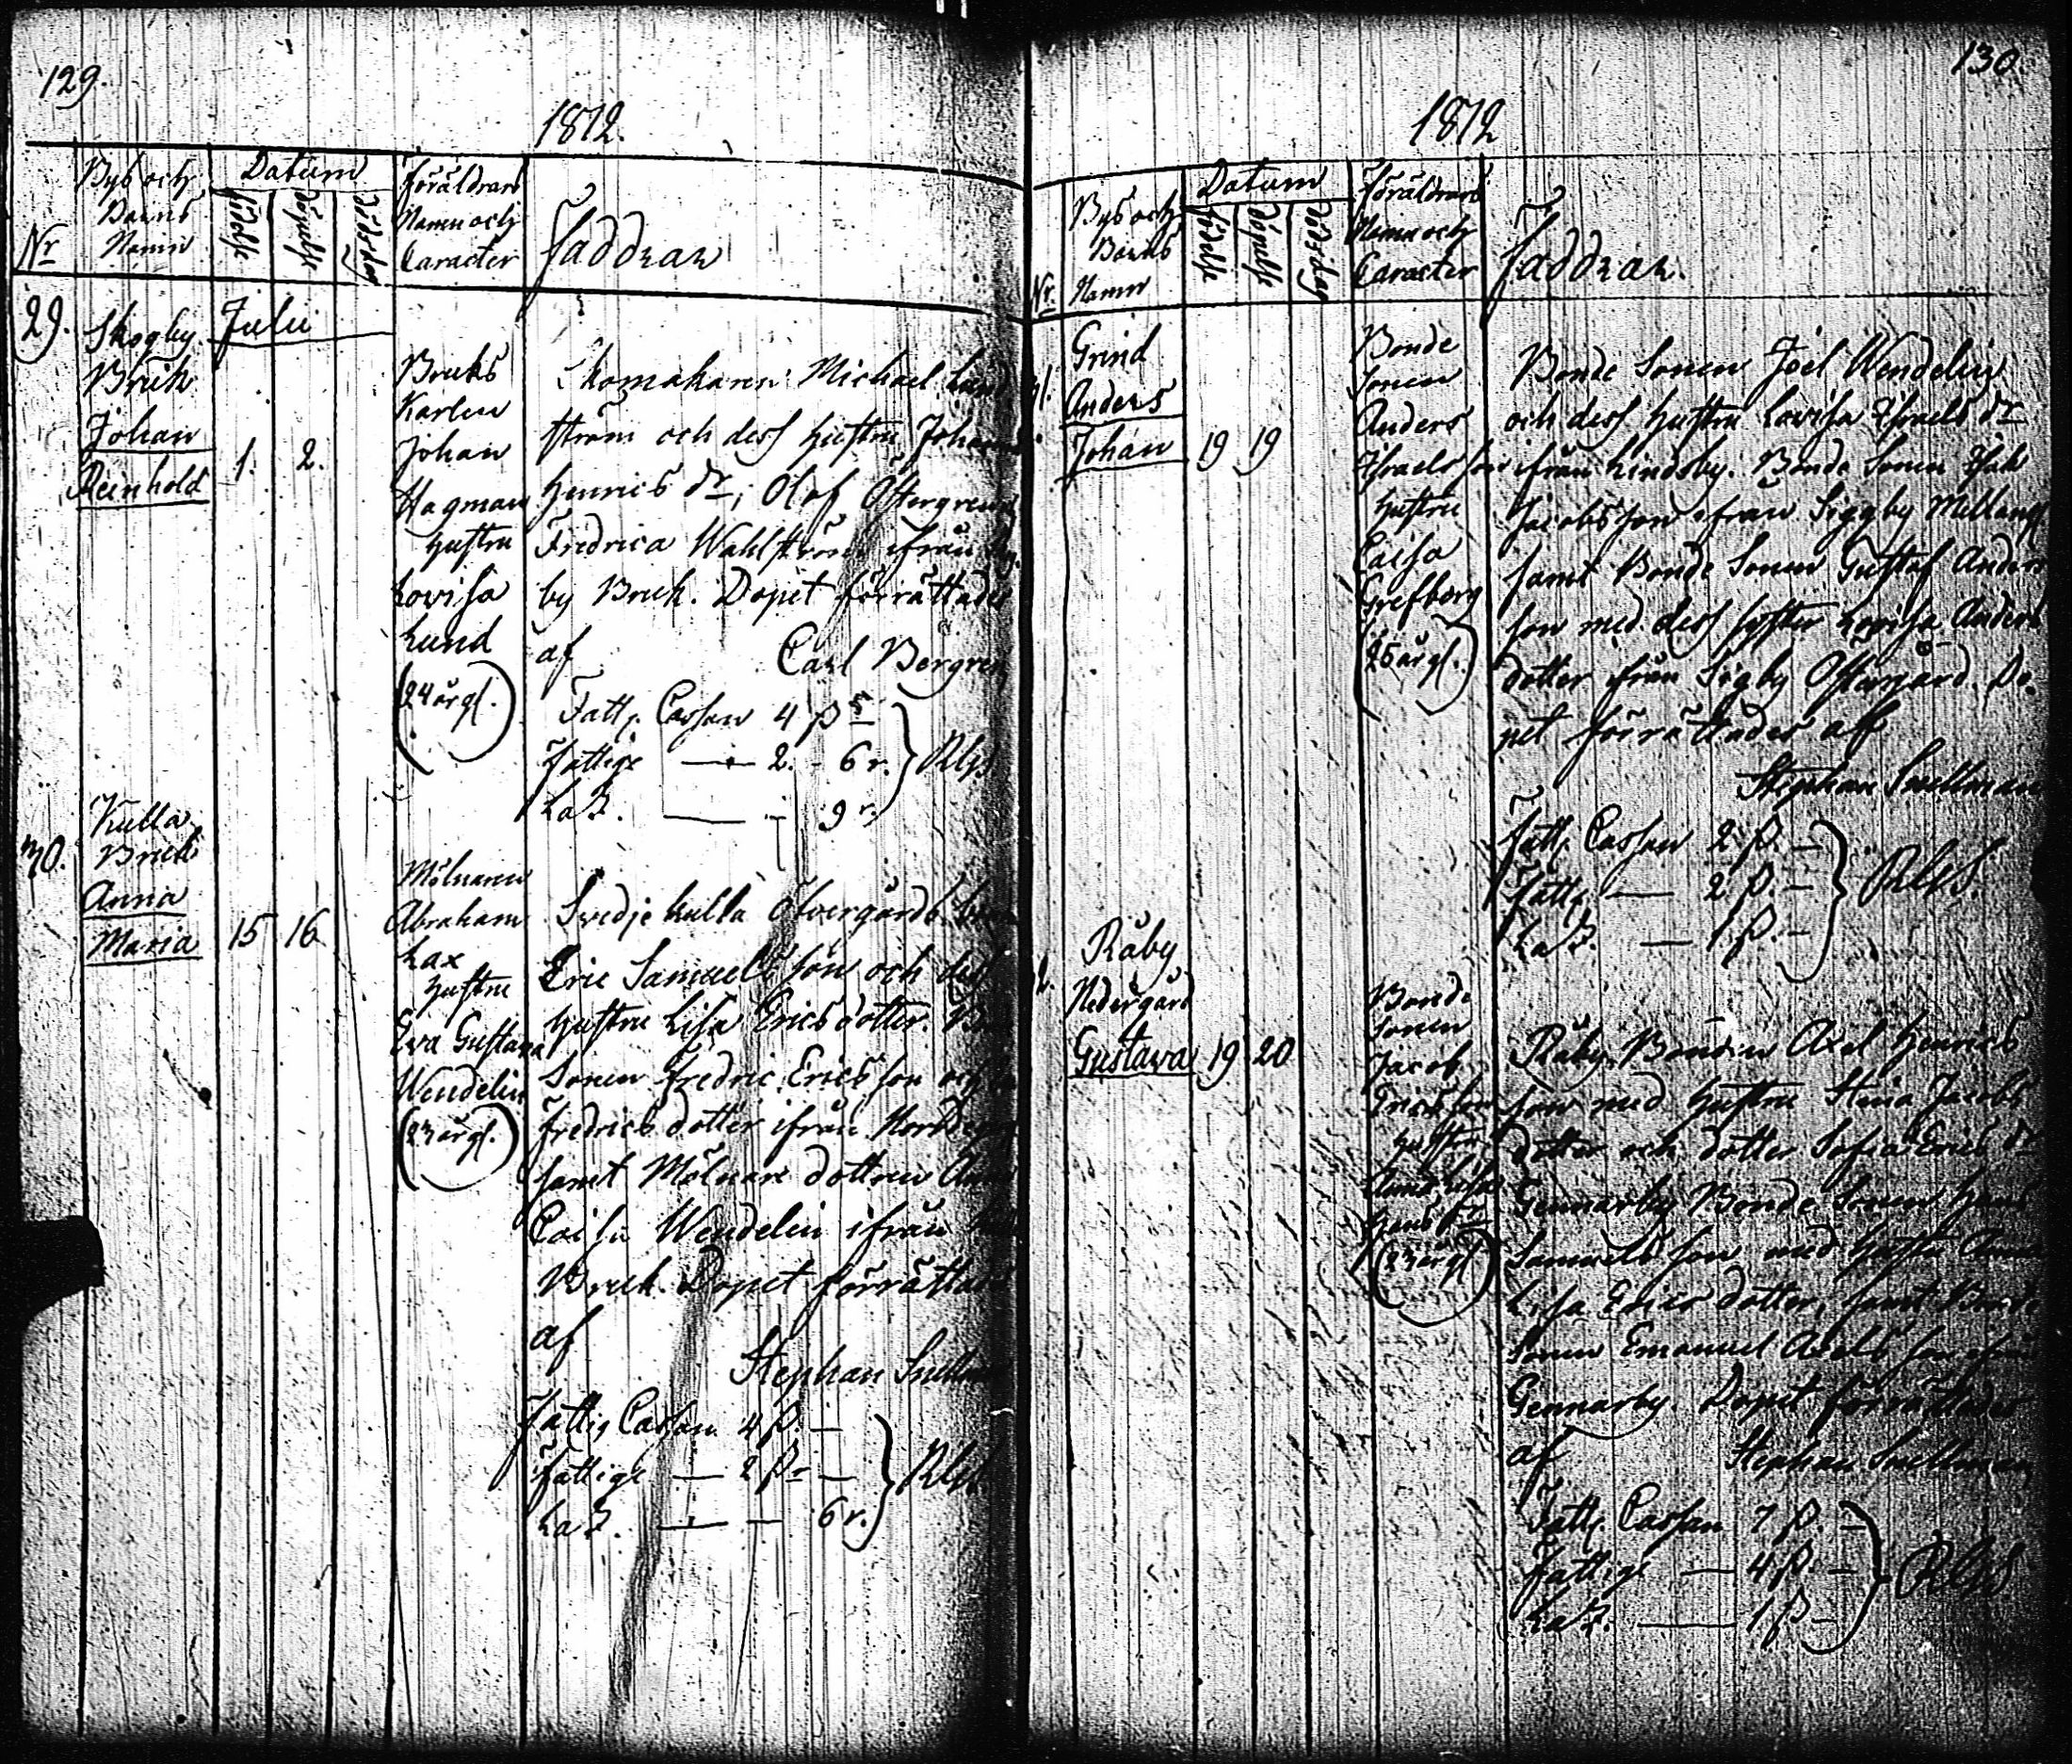 129.
1812.
Nr
Bys och
Barns
Namn
Datum
födelse
döpelse
dödsdag
föräldrars
Namn och
Caracter
Faddrar
29.
Skogby
Bruk
Johan
Reinhold
Julii
1.
2.
Bruks
Karlen
Johan
Hagman
hustru
Lovisa
Lund
(24 år gl.)
Skomakaren Michael Lund
ström och dess hustru Johanna
Henrics dr; Olof Östergren
Fredrica Wahlström ifrån
by Bruk. Dopet förrättades
af Carl Bergren
Fattig Cassan 4 β
fattige — 2. - 6 r. } Rgs
La . — - 9 r.
30.
Kulla
Bruk
Anna
Maria
15
16
Mölnaren
Abraham
Lax
hustru
Eva Gustava
Wendelin
(23 år gl.)
Svedjekulla Öfvergårds
Eric Samuels son och dess
hustru Lisa Ericsdotter.
Sonen Fredric Ericsson och
Fredricsdotter ifrån
samt Mölnare dottren
Caisa Wendelin ifrån
Bruk. Dopet förrättades
af
Stephan Snellman
Fattig Cassan 4 β. —
fattige — 2 β —
La . — — 6 r. }
130.
1812
Nr.
Bys och
Barns
Namn
Datum
födelse
döpelse
dödsdag
föräldrars
Namn och
Caracter
Faddrar.
Grind
Anders
Johan
19
19
Bonde
Sonen
Anders
Israels son
hustru
Caisa
Grefberg
(26 år gl.)
Bonde Sonen Joel Wendelin
och dess hustru Lovisa Israels dr
ifrån Lindsby. Bonde Sonen Isak
Jacobsson ifrån Siggby Mellangård
samt Bonde Sonen Gustaf Anders
son med dess syster Lovisa Anders
dotter ifrån Sigby Östergård. Do-
pet förrättades af
Stephan Snellman
Fattig Cassan 2 β. —
fattig — 2 β —
La . — 1 β. —
Råby
Nedergård
Gustava
19
20
Bonde
Sonen
Jacob
Ericsson
hustru
Anna Lisa
Hans dr
(23 år gl.)
Råby Bonden Axel Henrics
son med hustru Stina Jacobs
dotter och dotter Sofia Erics dr
Gennarby Bonde Sonen Hans
Samuels son med hustru Anna
Lisa Erics dotter, samt Bonde
Sonen Emanuel Axels son ifrån
Gennarby. Dopet förrättades
af Stephan Snellman
Fattig Cassan 7 β. —
Fattige — 4 β. —
La . — 1 β —